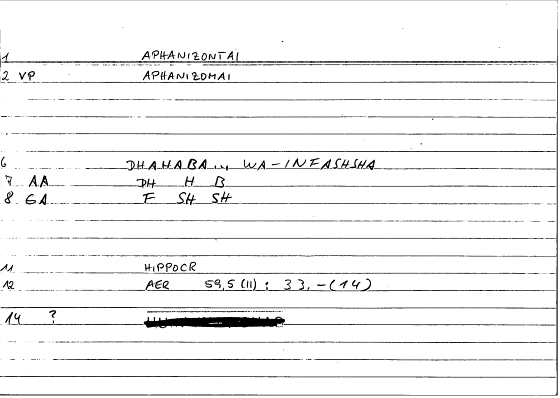 1 APHANIZONTAI
2 VP APHANIZOMAI
6 DHAHABA... WA-INFASHSHA
7 AA DH H B
8 GA F SH SH
11 HIPPOCR
12 AER 59,5 (11) : 33,-(14)
14 ?